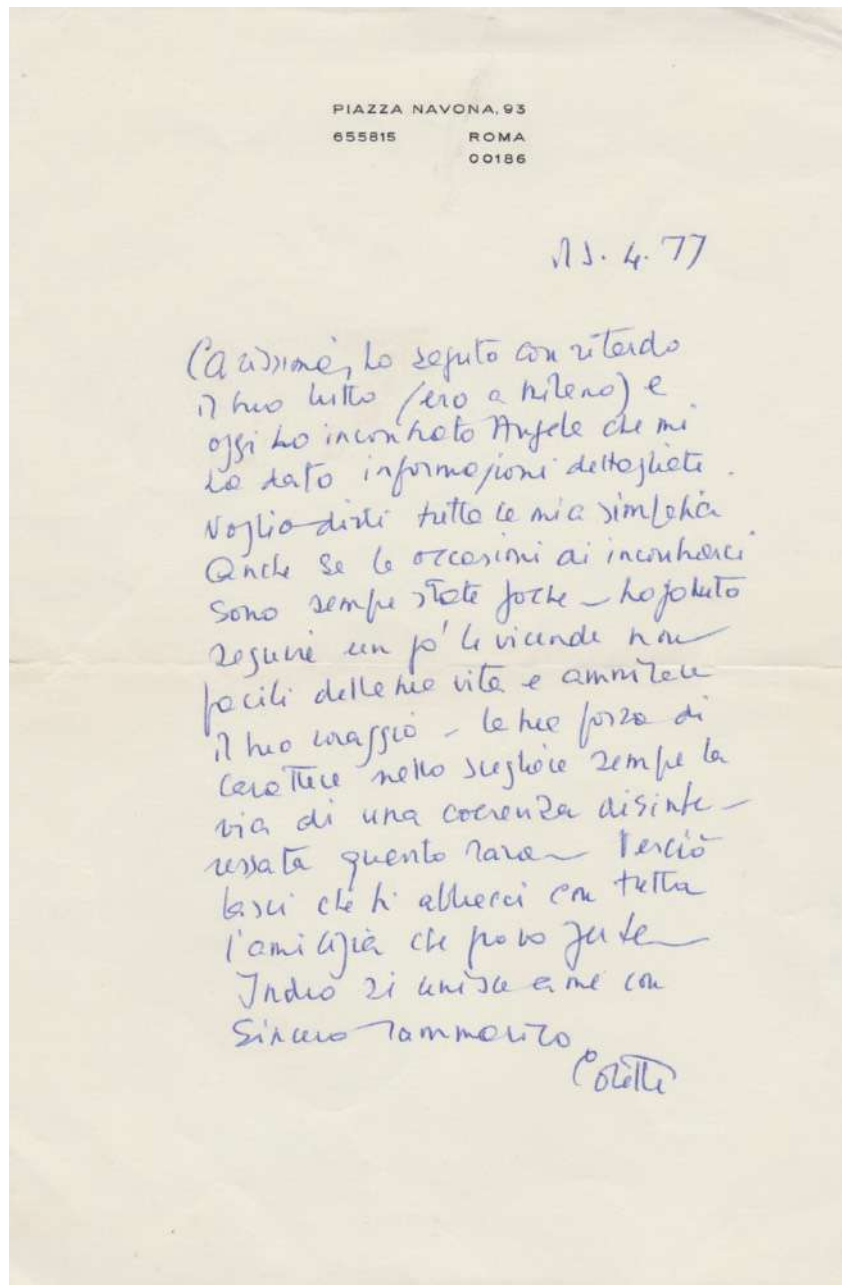 PIAZZA NAVONA, 93
655815 ROMA
00186
13. 4. 77
Carissima, ho saputo con ritardo
il tuo lutto (ero a Milano) e
oggi ho incontrato Angela che mi
ha dato informazioni dettagliate.
Voglio dirti tutta la mia simpatia
Anche se le occasioni di incontrarci
sono sempre state poche – ho potuto
seguire un po' le vicende non
facili della tua vita e ammirare
il tuo coraggio – la tua forza di
carattere nello scegliere sempre la
via di una coerenza disinte-
ressata quanto rara – Perciò
lasci che ti abbracci con tutta
l'amicizia che provo per te –
Indro si unisce a me con
sincero rammarico
Colette